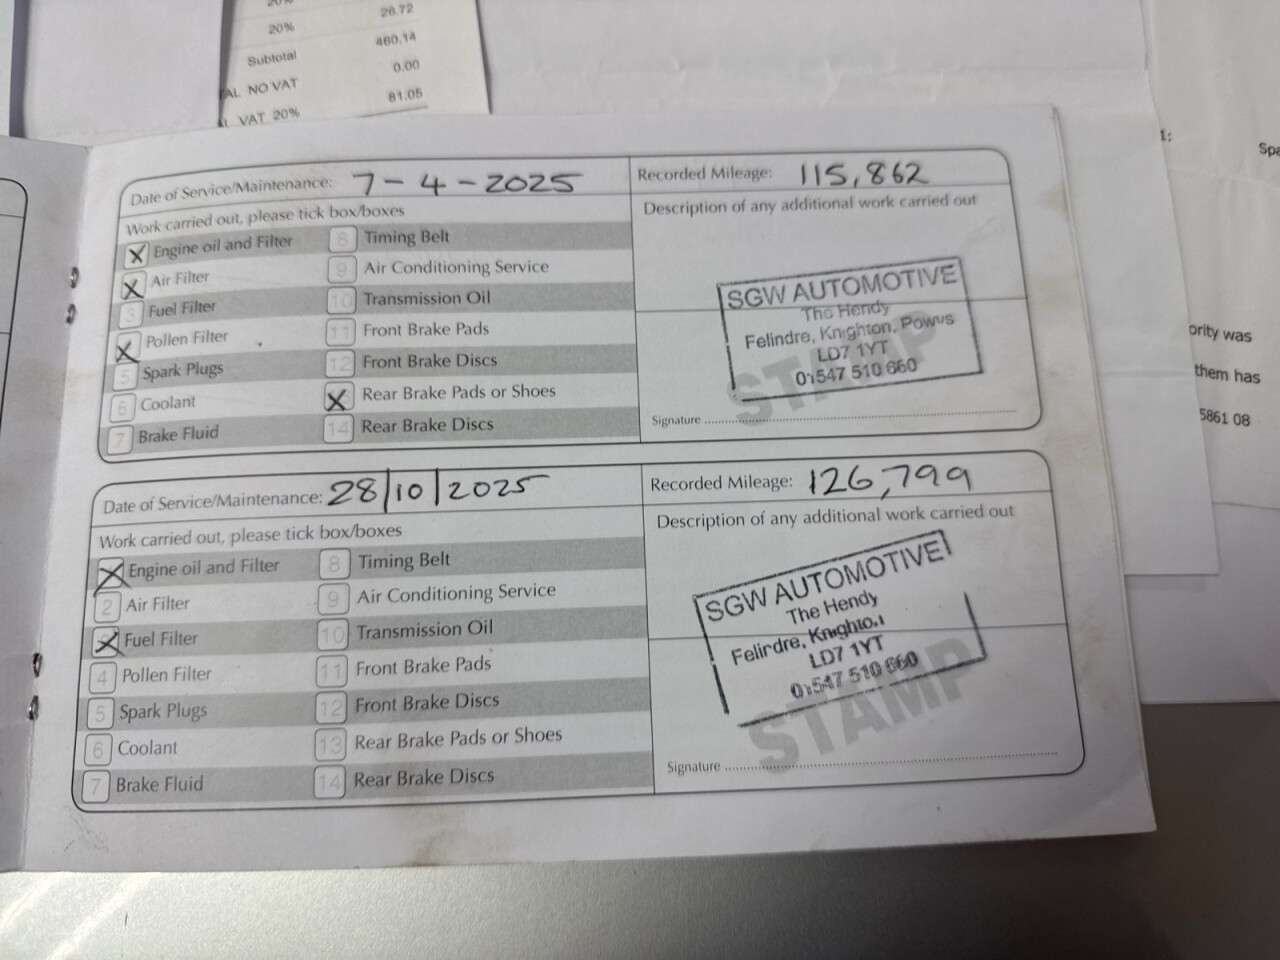 20%
20% 26.72
Subtotal 460.14
NO VAT 0.00
VAT 20% 81.05
1:
ority was
them has
5861 08
Date of Service/Maintenance: 7-4-2025
Recorded Mileage: 115,862
Work carried out, please tick box/boxes
Description of any additional work carried out
X Engine oil and Filter
X Air Filter
3 Fuel Filter
X Pollen Filter
5 Spark Plugs
6 Coolant
7 Brake Fluid
8 Timing Belt
9 Air Conditioning Service
10 Transmission Oil
11 Front Brake Pads
12 Front Brake Discs
X Rear Brake Pads or Shoes
14 Rear Brake Discs
SGW AUTOMOTIVE
The Hendy
Felindre, Knighton, Powys
LD7 1YT
01547 510 660
STAMP
Signature
Date of Service/Maintenance: 28/10/2025
Recorded Mileage: 126,799
Work carried out, please tick box/boxes
Description of any additional work carried out
X Engine oil and Filter
2 Air Filter
X Fuel Filter
4 Pollen Filter
5 Spark Plugs
6 Coolant
7 Brake Fluid
8 Timing Belt
9 Air Conditioning Service
10 Transmission Oil
11 Front Brake Pads
12 Front Brake Discs
13 Rear Brake Pads or Shoes
14 Rear Brake Discs
SGW AUTOMOTIVE
The Hendy
Felindre, Knighton
LD7 1YT
01547 510 660
STAMP
Signature